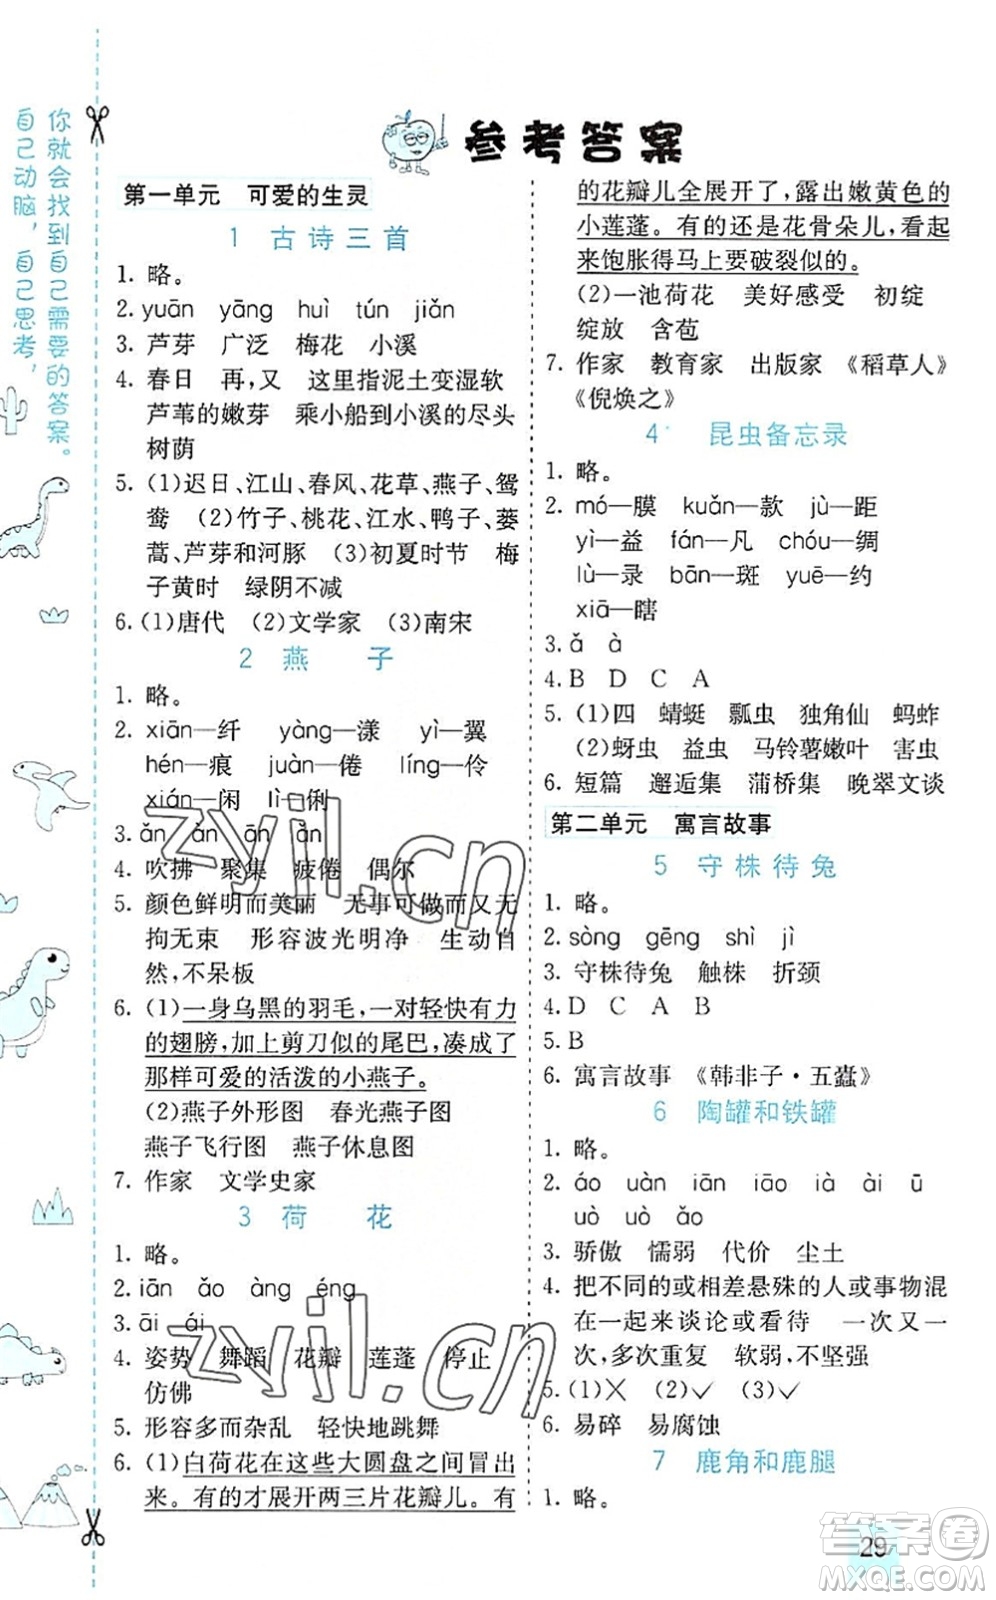 你就会找到自己需要的答案。
自己动脑，自己思考，
参考答案
第一单元 可爱的生灵
1 古诗三首
1. 略。
2. yuān yāng huì tún jiǎn
3. 芦芽 广泛 梅花 小溪
4. 春日 再，又 这里指泥土变湿软
芦苇的嫩芽 乘小船到小溪的尽头
树荫
5. (1)迟日、江山、春风、花草、燕子、鸳
鸯 (2)竹子、桃花、江水、鸭子、蒌
蒿、芦芽和河豚 (3)初夏时节 梅
子黄时 绿阴不减
6. (1)唐代 (2)文学家 (3)南宋
2 燕 子
1. 略。
2. xiān—纤 yàng—漾 yì—翼
hén—痕 juàn—倦 líng—伶
xián—闲 lì—俐
3. ǎn ǎn ān ǎn
4. 吹拂 聚集 疲倦 偶尔
5. 颜色鲜明而美丽 无事可做而又无
拘无束 形容波光明净 生动自
然，不呆板
6. (1)一身乌黑的羽毛，一对轻快有力
的翅膀，加上剪刀似的尾巴，凑成了
那样可爱的活泼的小燕子。
(2)燕子外形图 春光燕子图
燕子飞行图 燕子休息图
7. 作家 文学史家
3 荷 花
1. 略。
2. iān ǎo àng éng
3. āi ái
4. 姿势 舞蹈 花瓣 莲蓬 停止
仿佛
5. 形容多而杂乱 轻快地跳舞
6. (1)白荷花在这些大圆盘之间冒出
来。有的才展开两三片花瓣儿。有
的花瓣儿全展开了，露出嫩黄色的
小莲蓬。有的还是花骨朵儿，看起
来饱胀得马上要破裂似的。
(2)一池荷花 美好感受 初绽
绽放 含苞
7. 作家 教育家 出版家 《稻草人》
《倪焕之》
4 昆虫备忘录
1. 略。
2. mó—膜 kuǎn—款 jù—距
yì—益 fán—凡 chóu—绸
lù—录 bān—斑 yuē—约
xiā—瞎
3. ǎ à
4. B D C A
5. (1)四 蜻蜓 瓢虫 独角仙 蚂蚱
(2)蚜虫 益虫 马铃薯嫩叶 害虫
6. 短篇 邂逅集 蒲桥集 晚翠文谈
第二单元 寓言故事
5 守株待兔
1. 略。
2. sòng gēng shì jì
3. 守株待兔 触株 折颈
4. D C A B
5. B
6. 寓言故事 《韩非子·五蠹》
6 陶罐和铁罐
1. 略。
2. áo uàn iān iāo ià ài ū
uò uò ǎo
3. 骄傲 懦弱 代价 尘土
4. 把不同的或相差悬殊的人或事物混
在一起来谈论或看待 一次又一
次，多次重复 软弱，不坚强
5. (1)✕ (2)✓ (3)✓
6. 易碎 易腐蚀
7 鹿角和鹿腿
1. 略。
29
zyjl.cn
zyjl.cn
答案圈
MXQE.COM